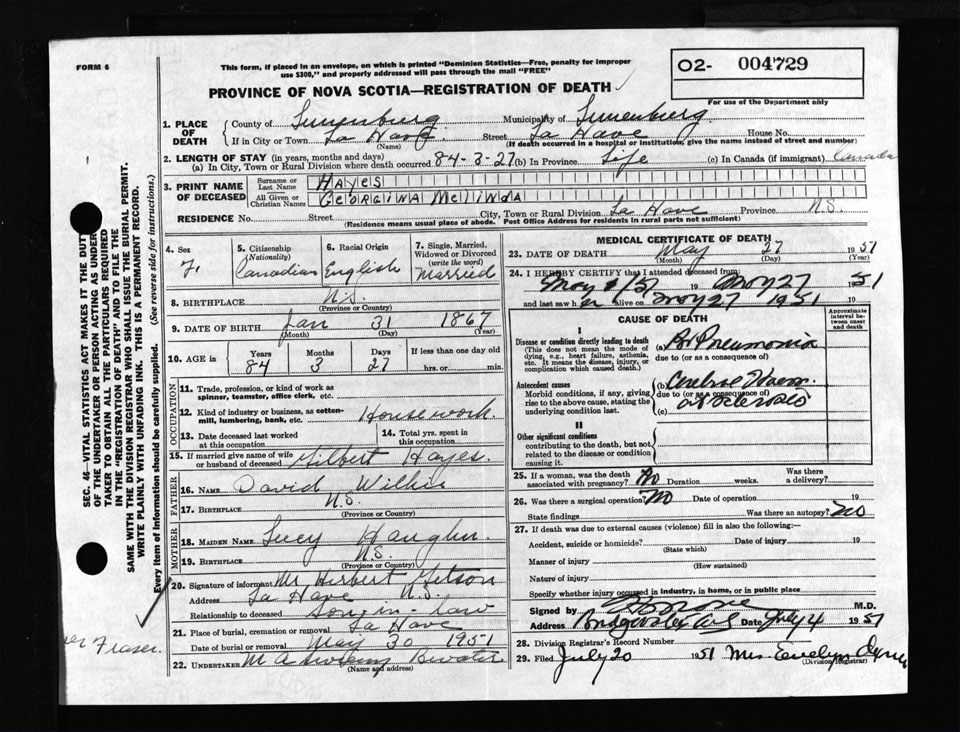 FORM 6
This form, if placed in an envelope, on which is printed "Dominion Statistics—Free, penalty for improper
use $300," and properly addressed will pass through the mail "FREE"
O2- 004729
For use of the Department only
PROVINCE OF NOVA SCOTIA—REGISTRATION OF DEATH
1. PLACE OF DEATH
County of Lunenburg Municipality of Lunenburg
If in City or Town La Have (Name) Street La Have House No.
(If death occurred in a hospital or institution, give the name instead of street and number)
2. LENGTH OF STAY (in years, months and days)
(a) In City, Town or Rural Division where death occurred 84-3-27 (b) In Province Life (c) In Canada (if immigrant) Canada
3. PRINT NAME OF DECEASED
Surname or Last Name Hayes
All Given or Christian Names Georgina Mellinda
RESIDENCE No. Street City, Town or Rural Division La Have Province N.S.
(Residence means usual place of abode. Post Office Address for residents in rural parts not sufficient)
4. Sex F.
5. Citizenship (Nationality) Canadian
6. Racial Origin English
7. Single, Married, Widowed or Divorced (write the word) Married
8. BIRTHPLACE N.S.
(Province or Country)
9. DATE OF BIRTH Jan 31 1867
(Month) (Day) (Year)
10. AGE in Years Months Days If less than one day
84 3 27 hrs. or min.
OCCUPATION
11. Trade, profession, or kind of work as
spinner, teamster, office clerk, etc.
12. Kind of industry or business, as cotton-
mill, lumbering, bank, etc. Housework.
13. Date deceased last worked
at this occupation
14. Total yrs. spent in
this occupation
15. If married give name of wife
or husband of deceased Hayes.
FATHER
16. NAME David Wilkie
17. BIRTHPLACE N.S.
(Province or Country)
MOTHER
18. MAIDEN NAME Lucy
19. BIRTHPLACE N.S.
(Province or Country)
20. Signature of informant Mr Herbert
Address La Have N.S.
Relationship to deceased Son in-law
21. Place of burial, cremation or removal La Have
Date of burial or removal May 30 1951
22. UNDERTAKER M A
(Name and address)
MEDICAL CERTIFICATE OF DEATH
23. DATE OF DEATH May 27 1951
(Month) (Day)
24. I HEREBY CERTIFY that I attended deceased from
May 27 1951
and last saw h er alive on May 27 1951 19
CAUSE OF DEATH
Approximate interval between onset and death
I
Disease or condition directly leading to death
(This does not mean the mode of
dying, e.g., heart failure, asthenia,
etc. It means the disease, injury, or
complication which caused death.)
(a) Br Pneumonia
due to (or as a consequence of)
Antecedent causes
Morbid conditions, if any, giving
rise to the above cause, stating the
underlying condition last.
(b) Cerebral
due to (or as a consequence of)
(c)
II
Other significant conditions
contributing to the death, but not
related to the disease or condition
causing it.
25. If a woman, was the death
associated with pregnancy? No Duration weeks. Was there
a delivery?
26. Was there a surgical operation? No Date of operation 19
State findings Was there an autopsy? No
27. If death was due to external causes (violence) fill in also the following:—
Accident, suicide or homicide? Date of injury 19
(State which)
Manner of injury
(How sustained)
Nature of injury
Specify whether injury occurred in industry, in home, or in public place
Signed by M.D.
Address Bridgewater N.S. Date July 4 1951
28. Division Registrar's Record Number
29. Filed July 20 1951 Mrs. Evelyn
(Division Registrar)
SEC. 46—VITAL STATISTICS ACT MAKES IT THE DUTY
OF THE UNDERTAKER OR PERSON ACTING AS UNDER-
TAKER TO OBTAIN ALL THE PARTICULARS REQUIRED
IN THE "REGISTRATION OF DEATH" AND TO FILE THE
SAME WITH THE DIVISION REGISTRAR WHO SHALL ISSUE THE BURIAL PERMIT.
WRITE PLAINLY WITH UNFADING INK. THIS IS A PERMANENT RECORD.
Every item of Information should be carefully supplied. (See reverse side for instructions.)
Fraser